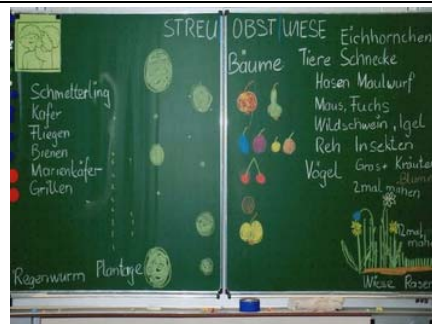 STREU OBST WIESE
Schmetterling
Käfer
Fliegen
Bienen
Marienkäfer
Grillen
Regenwurm
Plantage
Bäume
Eichhörnchen
Tiere Schnecke
Hasen Maulwurf
Maus, Fuchs
Wildschwein, Igel
Reh Insekten
Vögel
Gras + Kräuter
Blumen
2mal mähen
12mal
mähen
Wiese Rasen